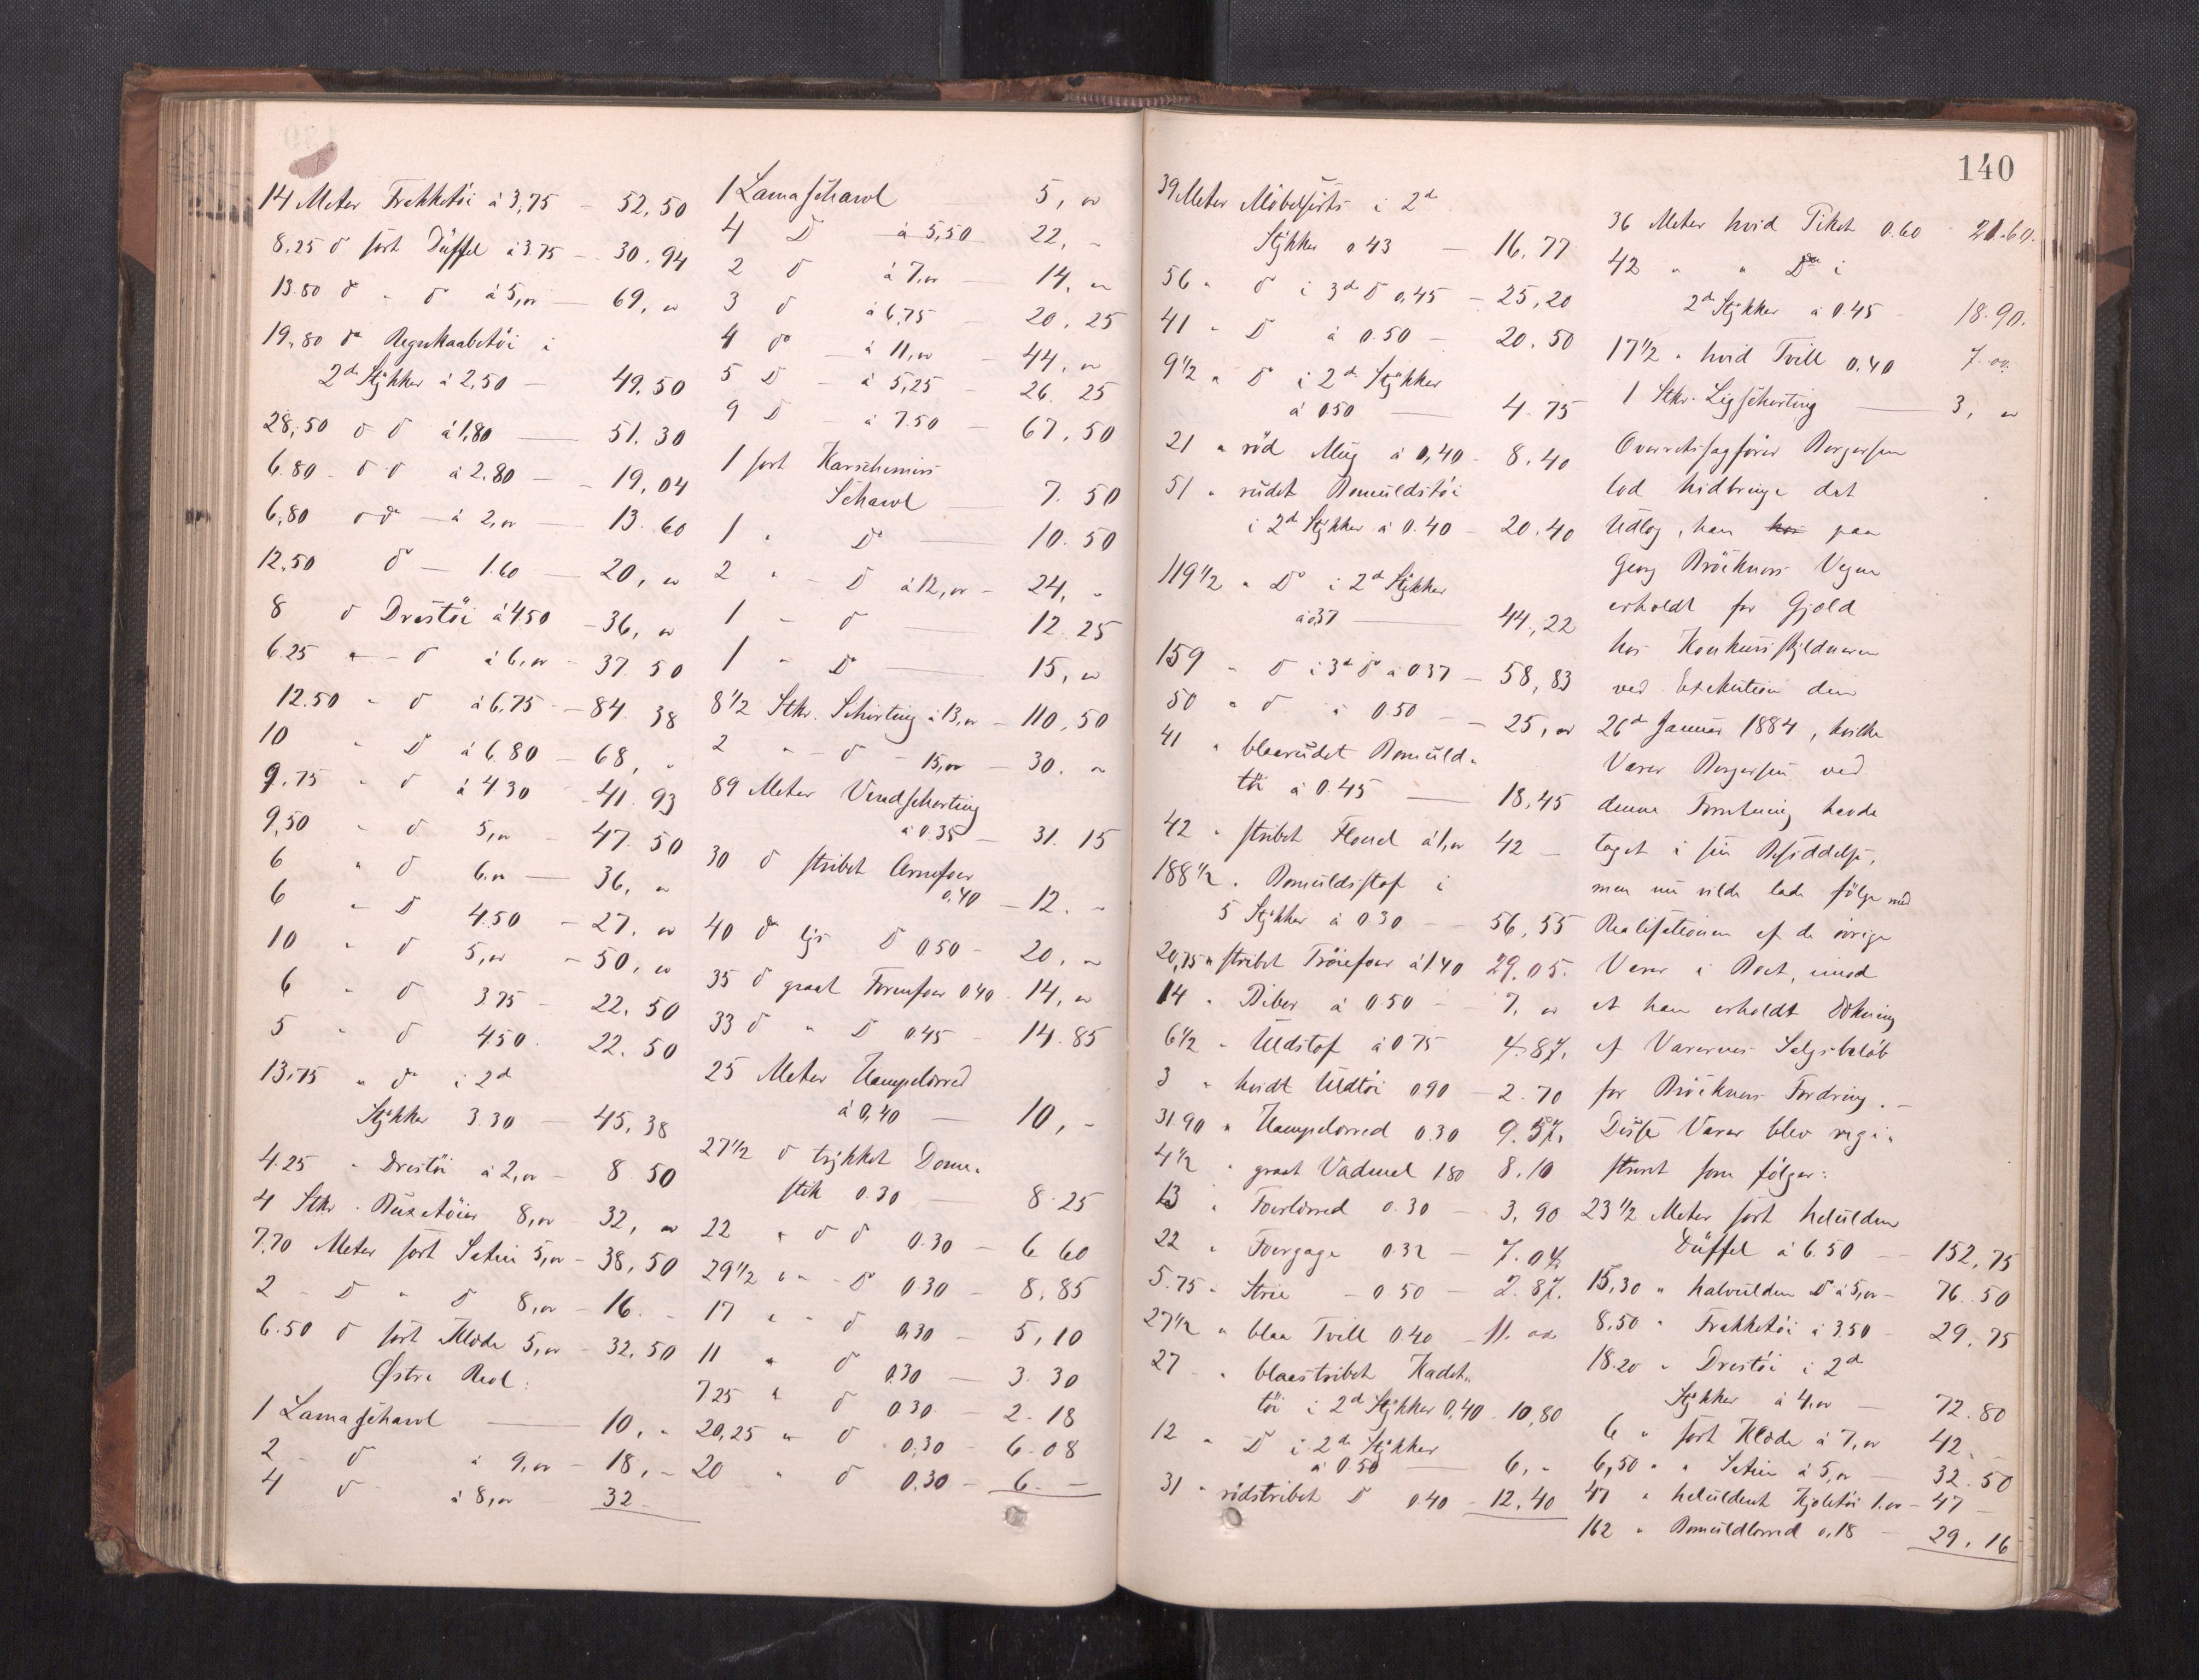 14 Meter Frakketöi à 3,75 – 52,50
8.25 do sort Düffel à 3.75 – 30.94
13.80 do „ do à 5,oo – 69, oo
19,80 do Regnkaabetöi i
2de Stykker à 2,50 – 49.50
28,50 do do à 1,80 – 51.30
6.80 – do do à 2.80 – 19,04
6,80 do do – à 2,oo – 13.60
12,50 do – 1.60 – 20, oo
8 do Drestöi à 4.50 – 36, oo
6.25 „ – do à 6,oo – 37.50
12.50 – do à 6,75 – 84.38
10 „ Do à 6.80 – 68, „
9.75 „ do à 4.30 – 41.93
9,50 „ do 5,oo – 47.50
6 „ do 6.oo – 36, oo
6 „ Do 4.50 – 27, oo
10 „ do 5,oo – 50, oo
6 „ do 3.75 – 22.50
5 „ do 4.50 – 22.50
13,75 „ do i 2de
Stykker 3.30 – 45,38
4.25 „ Drestöi à 2,oo – 8.50
4 Stkr. Buxetöier 8,oo 32, oo
7,70 Meter sort Satin 5,oo – 38,50
2 – Do „ Do 8,oo – 16. –
6.50 do sort Klæde 5,oo – 32,50
Østre Reol:
1 Lamaschawl – 10, „
2 – do à 9,oo – 18, –
4 do à 8,oo 32 –
1 Lamaschawl 5, oo
4 Do – à 5,50 22, –
2 do à 7,oo – 14, oo
3 do à 6,75 20.25
4 do – à 11,oo – 44, oo
5 Do – à 5,25 – 26.25
9 Do – à 7.50 – 67,50
1 sort Karschemirs
Schawl – 7.50
1 „ Do – 10.50
2 „ – Do à 12,oo – 24, „
1 – do – 12.25
1 „ Do – 15, oo
8 1/2 Stkr. Schirting à 13,oo – 110,50
2 „ – do – 15,oo – 30. „
89 Meter Vendschirting
à 0.35 – 31.15
30 do stribet Ærmefoer
0,40 – 12. –
40 do lys Do 0.50 – 20, „
35 do graat Formfoer 0.40 – 14, oo
33 do „ Do 0.45 – 14.85
25 Meter Hampelærred
à 0,40 – 10, –
27 1/2 do trykket Dome„
stik 0.30 – 8.25
22 „ do do 0.30 – 6.60
29 1/2 „ – Do 0.30 – 8,85
17 „ „ do 0,30 – 5,10
11 „ do 0.30 – 3.30
7.25 „ do 0.30 – 2.18
20,25 „ do 0,30 – 6.08
20 „ do 0.30 – 6. –
140
39 Meter Möbelsirts i 2de
Stykker 0.43 – 16.77
56 „ do i 3de Do 0,45 – 25,20
41 „ Do à 0.50 – 20.50
9 1/2 „ Do i 2de Stykker
à 0.50 – 4.75
21 „ röd Mug à 0,40 – 8.40
51 „ rudet Bomuldstöi
i 2de Stykker à 0.40 – 20.40
119 1/2 „ Do i 2de Stykker
à 0.37 – 44,22
159 „ do i 3de do à 0.37 – 58,83
50 „ do à 0.50 – 25, oo
41 „ blaarudet Bomulds„
töi à 0.45 – 18,45
42 „ stribet Flonel à 1,oo 42 –
188 1/2 „ Bomuldsstof i
5 Stykker à 0.30 – 56,55
20,75 „ stribet Tröiefoer à 1.40 29.05.
14 „ Biber à 0.50 – 7, oo
6 1/2 „ Uldstof à 0.75 4.87.
3 „ hvidt Uldtöi 0.90 – 2.70
31.90 „ Hampelærred 0.30 9.57.
4 1/2 „ graat Vadmel 1.80 8.10
13 „ Foerlærred 0.30 – 3,90
22 „ Foergage 0.32 – 7.04
5.75 „ Strie – 0.50 – 2.87.
27 1/2 „ blaa Tvill 0.40 – 11. oo
27 – „ blaastribet Kadet„
töi i 2de Stykker 0,40 – 10,80
12 „ Do i 2de Stykker
à 0.50 – 6, „
31 „ rödstribet Do 0.40 – 12.40
36 Meter hvid Piket 0.60 21.60.
42 „ „ Do i
2de Stykker à 0.45 – 18.90.
17 1/2 „ hvid Tvill 0,40 7.oo.
1 Stkr. Ligschirting – 3, oo
Overretssagförer Borgersen
lod hidbringe det
Udlæg, han hos paa
Georg Bröckners Vegne
erholdt for Gjæld
hos Konkursskyldneren
ved Exekution den
26de Januar 1884, hvilke
Varer Borgersen ved
denne Forretning havde
taget i sin Besiddelse,
men nu vilde lade fölge med
Realisationen af de övrige
Varer i Boet, imod
at han erholdt Dækning
af Varernes Salgsbelöb
for Bröckners Fordring. –
Disse Varer blev regi„
streret som fölger:
23 1/2 Meter sort helulden
Düffel à 6.50 – 152,75
15,30 „ halvulden Do à 5,oo – 76.50
8,50 „ Frakketöi à 3.50 – 29.75
18.20 „ Drestöi i 2de
Stykker à 4,oo – 72.80
6 „ sort Klæde à 7,oo 42 –
6,50 „ „ Satin à 5,oo – 32.50
47 „ helulden Kjoletöi 1.oo – 47 –
162 „ Bomuldlærred 0.18 – 29.16